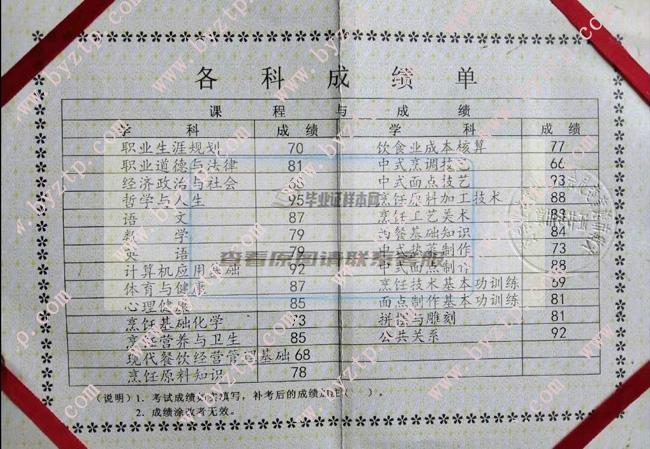 各科成绩单
课程与成绩
学科 成绩 学科 成绩
职业生涯规划 70 饮食业成本核算 77
职业道德与法律 81 中式烹调技艺 66
经济政治与社会 68 中式面点技艺 93
哲学与人生 95 烹饪原料加工技术 88
语文 87 烹饪工艺美术 83
数学 79 西餐基础知识 84
英语 79 中式热菜制作 73
计算机应用基础 92 中式面点制作 88
体育与健康 87 烹饪技术基本功训练 69
心理健康 85 面点制作基本功训练 81
烹饪基础化学 73 拼摆与雕刻 81
烹饪营养与卫生 85 公共关系 92
现代餐饮经营管理基础 68
烹饪原料知识 78
(说明) 1. 考试成绩如实填写,补考后的成绩加注( )。
2. 成绩涂改考无效。
毕业证样本网
查看原图请联系客服
www.byztp.com